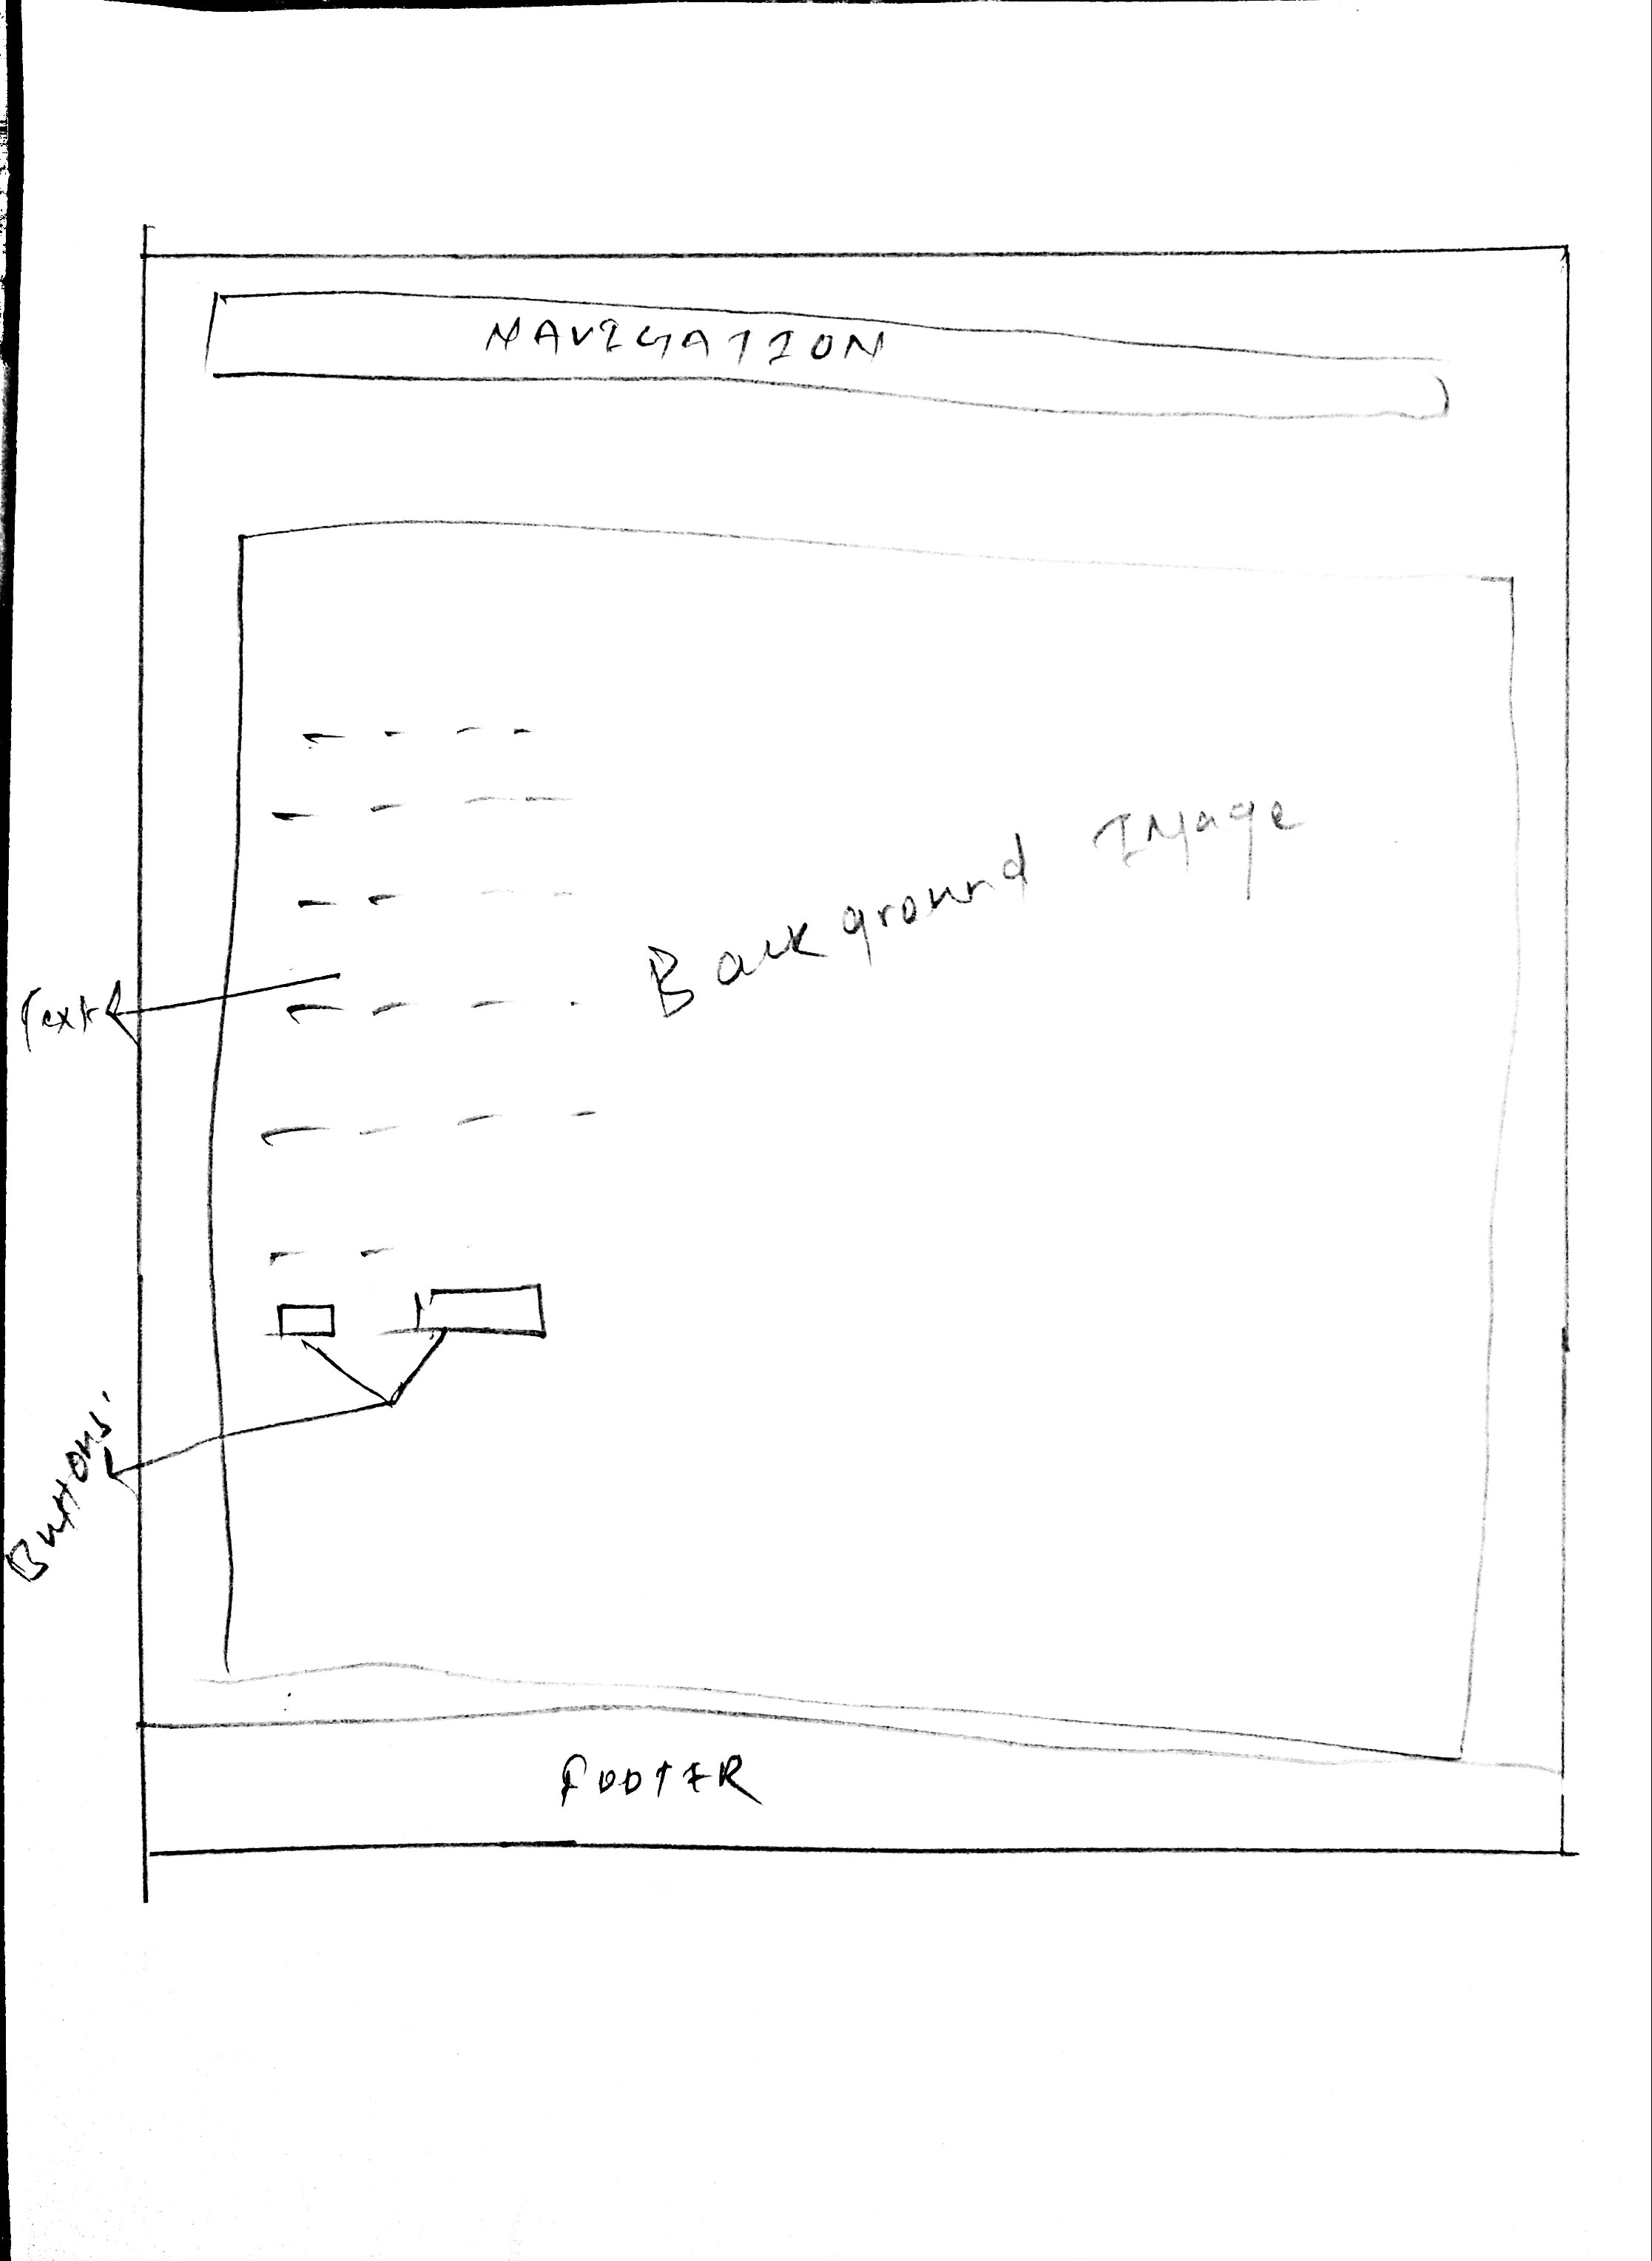 NAVIGATION
Background Image
Text
Buttons
FOOTER